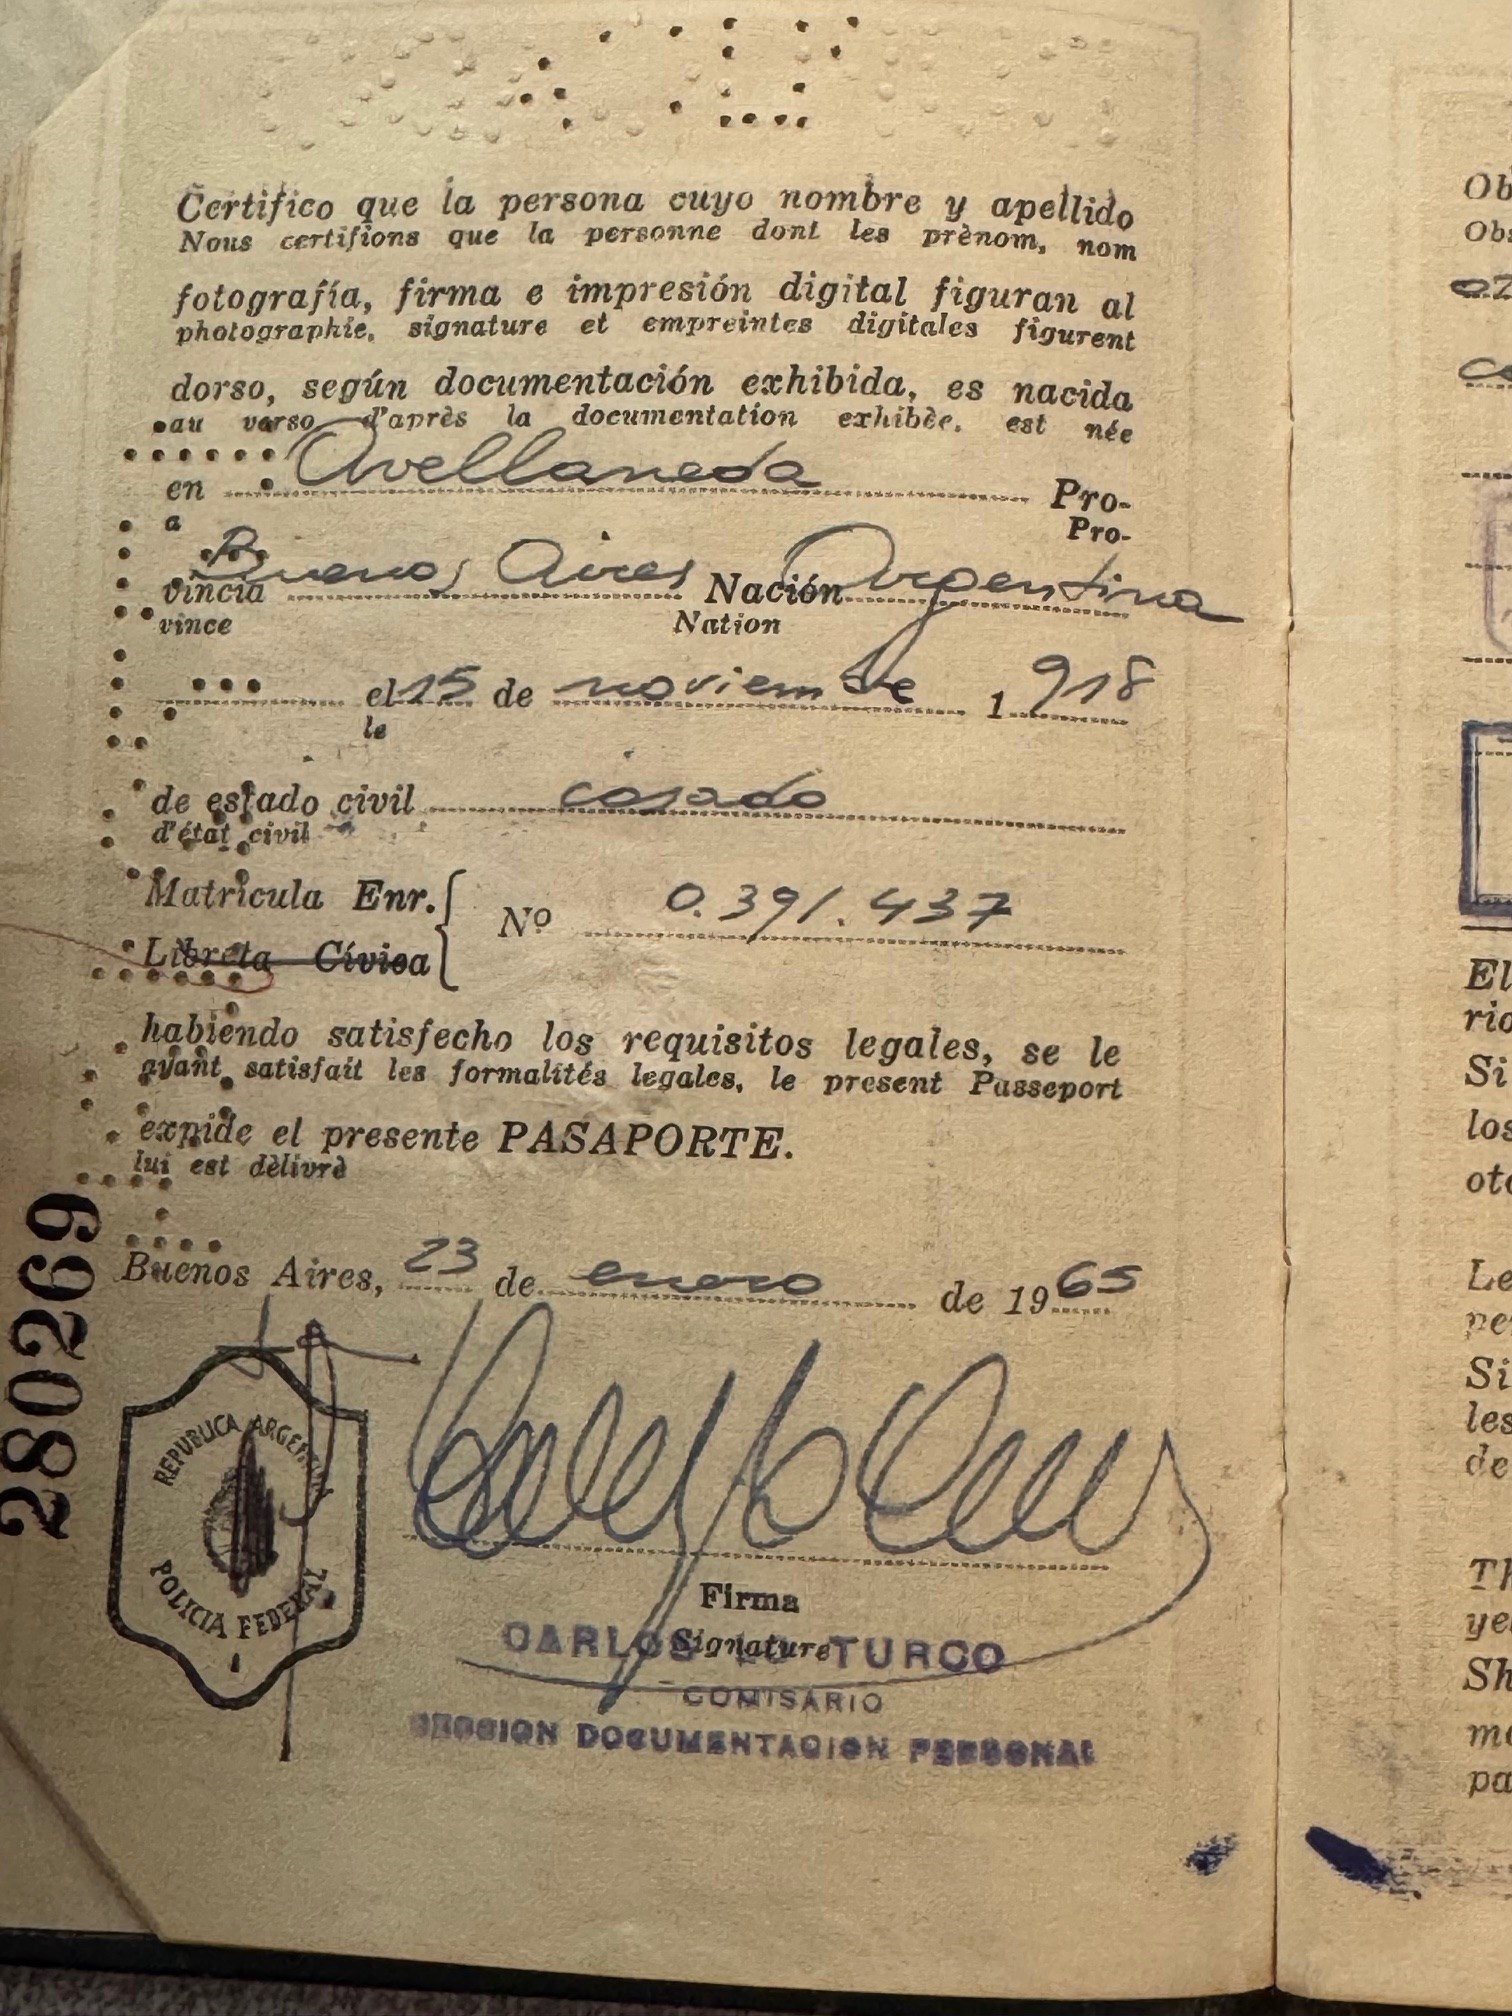 Certifico que la persona cuyo nombre y apellido
Nous certifions que la personne dont les prènom, nom
fotografía, firma e impresión digital figuran al
photographie, signature et empreintes digitales figurent
dorso, según documentación exhibida, es nacida
au verso d'après la documentation exhibèe, est née
en Avellaneda Pro-
a Pro-
vincia Buenos Aires Nación Argentina
vince Nation
el 15 de noviembre 1 918
le
de estado civil casado
d'état civil
Matrícula Enr.
Nº 0.391.437
Libreta Cívica
habiendo satisfecho los requisitos legales, se le
ayant satisfait les formalités legales, le present Passeport
expide el presente PASAPORTE.
lui est dèlivrè
Buenos Aires, 23 de enero de 19 65
280269
REPUBLICA ARGENTINA
POLICIA FEDERAL
Firma
Signature
CARLOS TURCO
COMISARIO
SECCION DOCUMENTACION PERSONAL
Ob
Obs
El
rio
Si
los
oto
Le
pe
Si
les
de
Th
ye
Sh
mo
pa